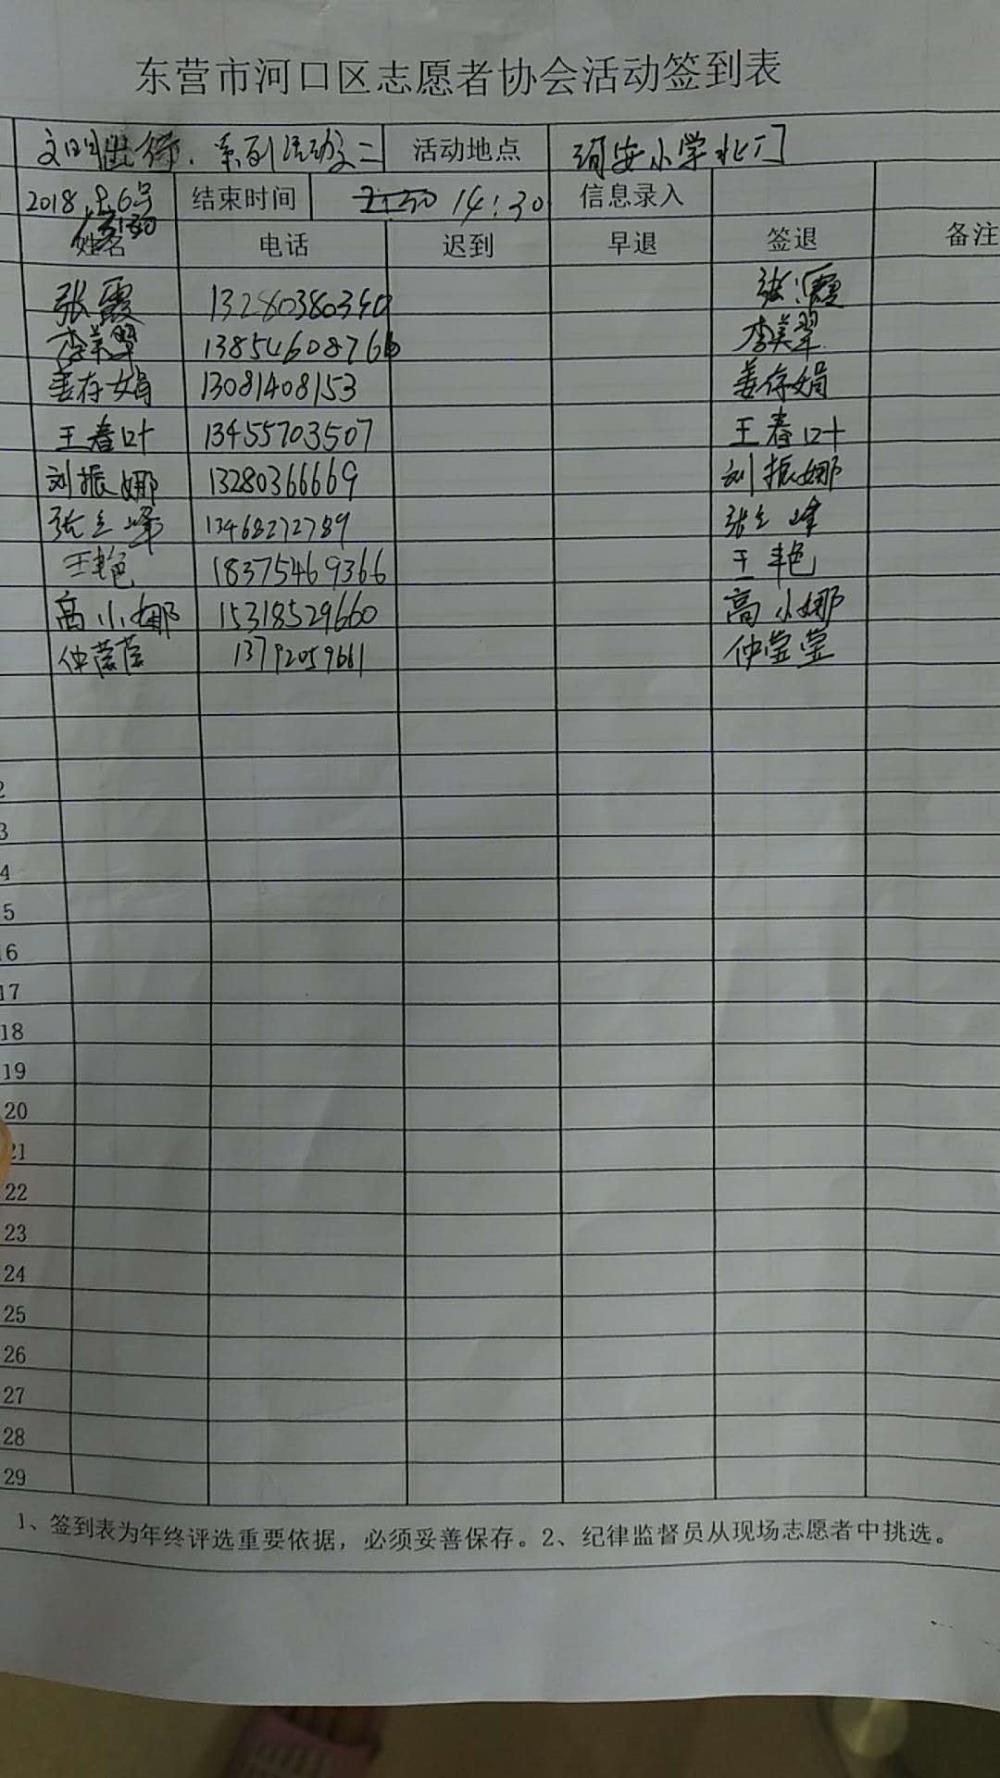 东营市河口区志愿者协会活动签到表
文明出行、系列活动之二 活动地点 河安小学北门
2018 6号 结束时间 14:30 信息录入
姓名 电话 迟到 早退 签退 备注
张霞 13280380340 张霞
李美翠 13854608766 李美翠
姜存娟 13081408153 姜存娟
王春叶 13455703507 王春叶
刘振娜 13280366669 刘振娜
张立峰 13468272789 张立峰
王艳 18375469366 王艳
高小娜 15318529660 高小娜
仲莹莹 13792059661 仲莹莹
2
3
4
5
16
17
18
19
20
21
22
23
24
25
26
27
28
29
1、签到表为年终评选重要依据，必须妥善保存。2、纪律监督员从现场志愿者中挑选。